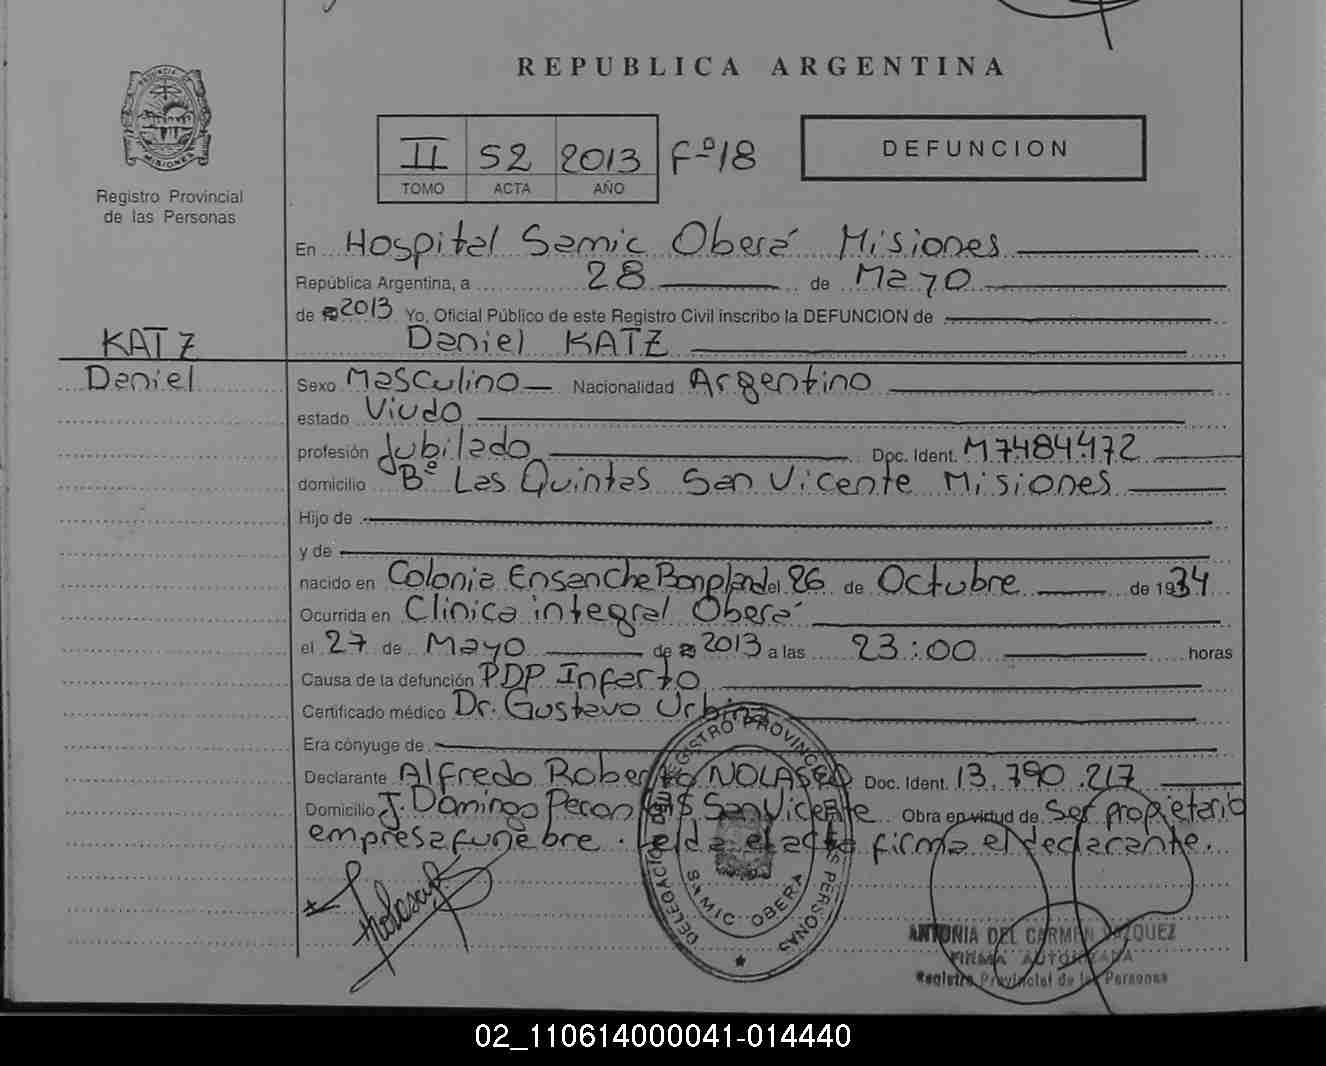 REPUBLICA ARGENTINA
PROVINCIA DE MISIONES
Registro Provincial
de las Personas
II 52 2013 Fº18
TOMO ACTA AÑO
DEFUNCION
En Hospital Samic Oberá Misiones
República Argentina, a 28 de Mayo
de 2013 Yo, Oficial Público de este Registro Civil inscribo la DEFUNCION de
KATZ Daniel KATZ
Daniel Sexo Masculino Nacionalidad Argentino
estado Viudo
profesión Jubilado Doc. Ident. M7484472
domicilio Bº Las Quintas San Vicente Misiones
Hijo de
y de
nacido en Colonia Ensanche Bonpland el 26 de Octubre de 1934
Ocurrida en Clinica integral Oberá
el 27 de Mayo de 2013 a las 23:00 horas
Causa de la defunción PDP Infarto
Certificado médico Dr. Gustavo Urbina
Era cónyuge de
Declarante Alfredo Roberto NOLASCO Doc. Ident. 13.790.217
Domicilio J. Domingo Peron San Vicente Obra en virtud de Ser propietario
empresa funebre. Leída el acta firma el declarante.
REGISTRO PROVINCIAL DE LAS PERSONAS
DELEGACION
SAMIC OBERA
ANTONIA DEL CARMEN VAZQUEZ
FIRMA AUTORIZADA
Registro Provincial de las Personas
02_110614000041-014440